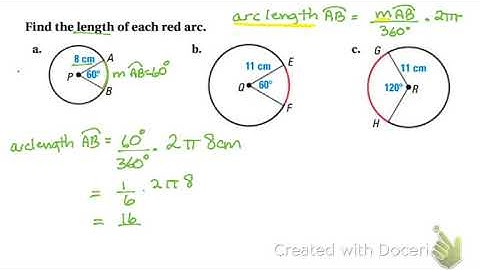 Find the length of each red arc.
arc length AB = mAB/360° · 2πr
a.
8 cm
A
P
60°
B
mAB=60°
b.
11 cm
E
Q
60°
F
c.
G
11 cm
120°
R
H
arc length AB = 60°/360° · 2π 8cm
= 1/6 · 2π 8
= 16
Created with Doceri